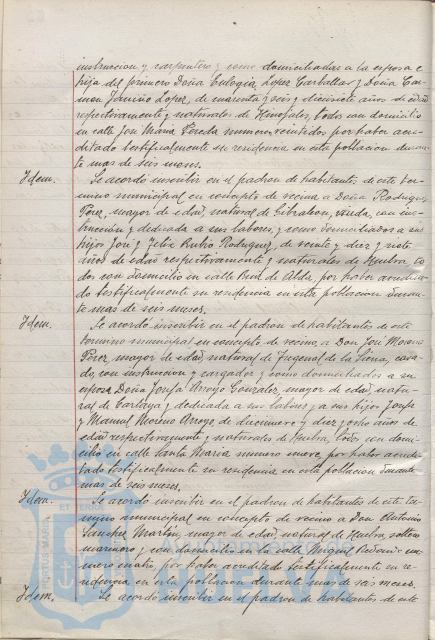 instruccion y carpintero y como domiciliadas a la esposa e
hija del primero Doña Eulogia Lopez Carballar y Doña Car-
men Lopez, de cuarenta y seis y diecisiete años de edad
respectivamente y naturales de Hinojales, todos con domicilio
en calle Jose Maria Pereda numero veintidos por haber acre-
ditado testificalmente su residencia en esta poblacion duran-
te mas de seis meses.
Idem. Se acordó inscribir en el padron de habitantes de este ter-
mino municipal en concepto de vecina a Doña Rodriguez
Perez, mayor de edad, natural de Gibraleon, viuda, con ins-
truccion y dedicada a sus labores, y como domiciliados a sus
hijos José y Felix Rubio Rodriguez, de veinte y diez y siete
años de edad respectivamente y naturales de Huelva, to-
dos con domicilio en calle de Aldea, por haber acredita-
do testificalmente su residencia en esta poblacion duran-
te mas de seis meses.
Idem. Se acordó inscribir en el padron de habitantes de este
termino municipal en concepto de vecino, a Don José Moreno
Perez, mayor de edad, natural de Fregenal de la Sierra, casa-
do, con instruccion y cargador y como domiciliados a su
esposa Doña Josefa Arroyo Gonzalez, mayor de edad, natu-
ral de Cartaya y dedicada a sus labores, y a sus hijos Josefa
y Manuel Moreno Arroyo de diecinueve y diez y ocho años de
edad respectivamente y naturales de Huelva, todos con domi-
cilio en calle Santa Maria numero nueve, por haber acredi-
tado testificalmente su residencia en esta poblacion durante
mas de seis meses.
Idem. Se acordó inscribir en el padron de habitantes de este ter-
mino municipal en concepto de vecino a Don Antonio
Sanchez Martin, mayor de edad, natural de Huelva, soltero
marinero, y con domicilio en la calle Miguel Redondo nu-
mero cuatro, por haber acreditado testificalmente su re-
sidencia en esta poblacion durante mas de seis meses.
Idem. Se acordó inscribir en el padron de habitantes de este